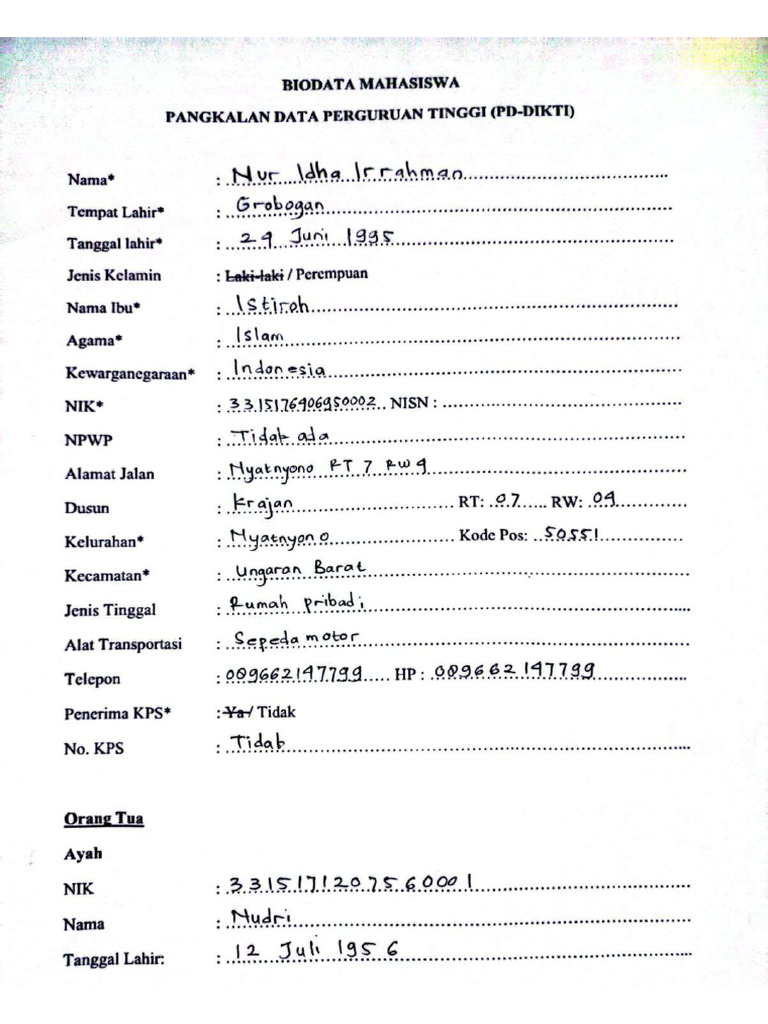 BIODATA MAHASISWA
PANGKALAN DATA PERGURUAN TINGGI (PD-DIKTI)
Nama* : Nur Idha Irrahman
Tempat Lahir* : Grobogan
Tanggal lahir* : 29 Juni 1995
Jenis Kelamin : Laki-laki / Perempuan
Nama Ibu* : Istiroh
Agama* : Islam
Kewarganegaraan* : Indonesia
NIK* : 3315176906950002 NISN :
NPWP : Tidak ada
Alamat Jalan : Nyatnyono RT 7 RW 9
Dusun : Krajan RT: 07 RW: 09
Kelurahan* : Nyatnyono Kode Pos: 50551
Kecamatan* : Ungaran Barat
Jenis Tinggal : Rumah pribadi
Alat Transportasi : Sepeda motor
Telepon : 089662147799 HP : 089662147799
Penerima KPS* : Ya / Tidak
No. KPS : Tidak
Orang Tua
Ayah
NIK : 3315171207560001
Nama : Nudri
Tanggal Lahir: : 12 Juli 1956